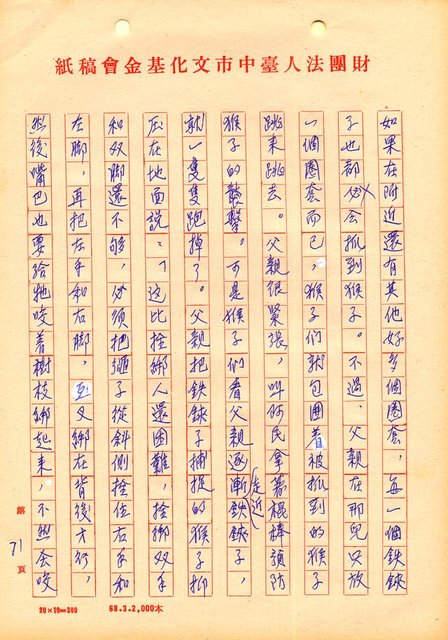 財團法人臺中市文化基金會稿紙
如果在附近還有其他好多個圈套,每一個鉄鋏
子也都必会抓到猴子。不過,父親在那兒只放
一個圈套而已,猴子们就包圍着被抓到的猴子
跳来跳去。父親很緊張,叫阿民拿着棍棒預防
猴子的襲擊。可是猴子们看父親逐漸走近鉄鋏子,
就一隻隻跑掉了。父親把鉄鋏子捕捉的猴子抑
压在地面說:「这比拴綁人還困難,拴綁双手
和双脚還不够,必須把繩子從斜側拴住右手和
左脚,再把左手和右脚,互叉綁在背後才行,
然後嘴巴也要给牠咬着樹枝綁起来,不然会咬
第71頁
20×10=200
68.3.2,000本